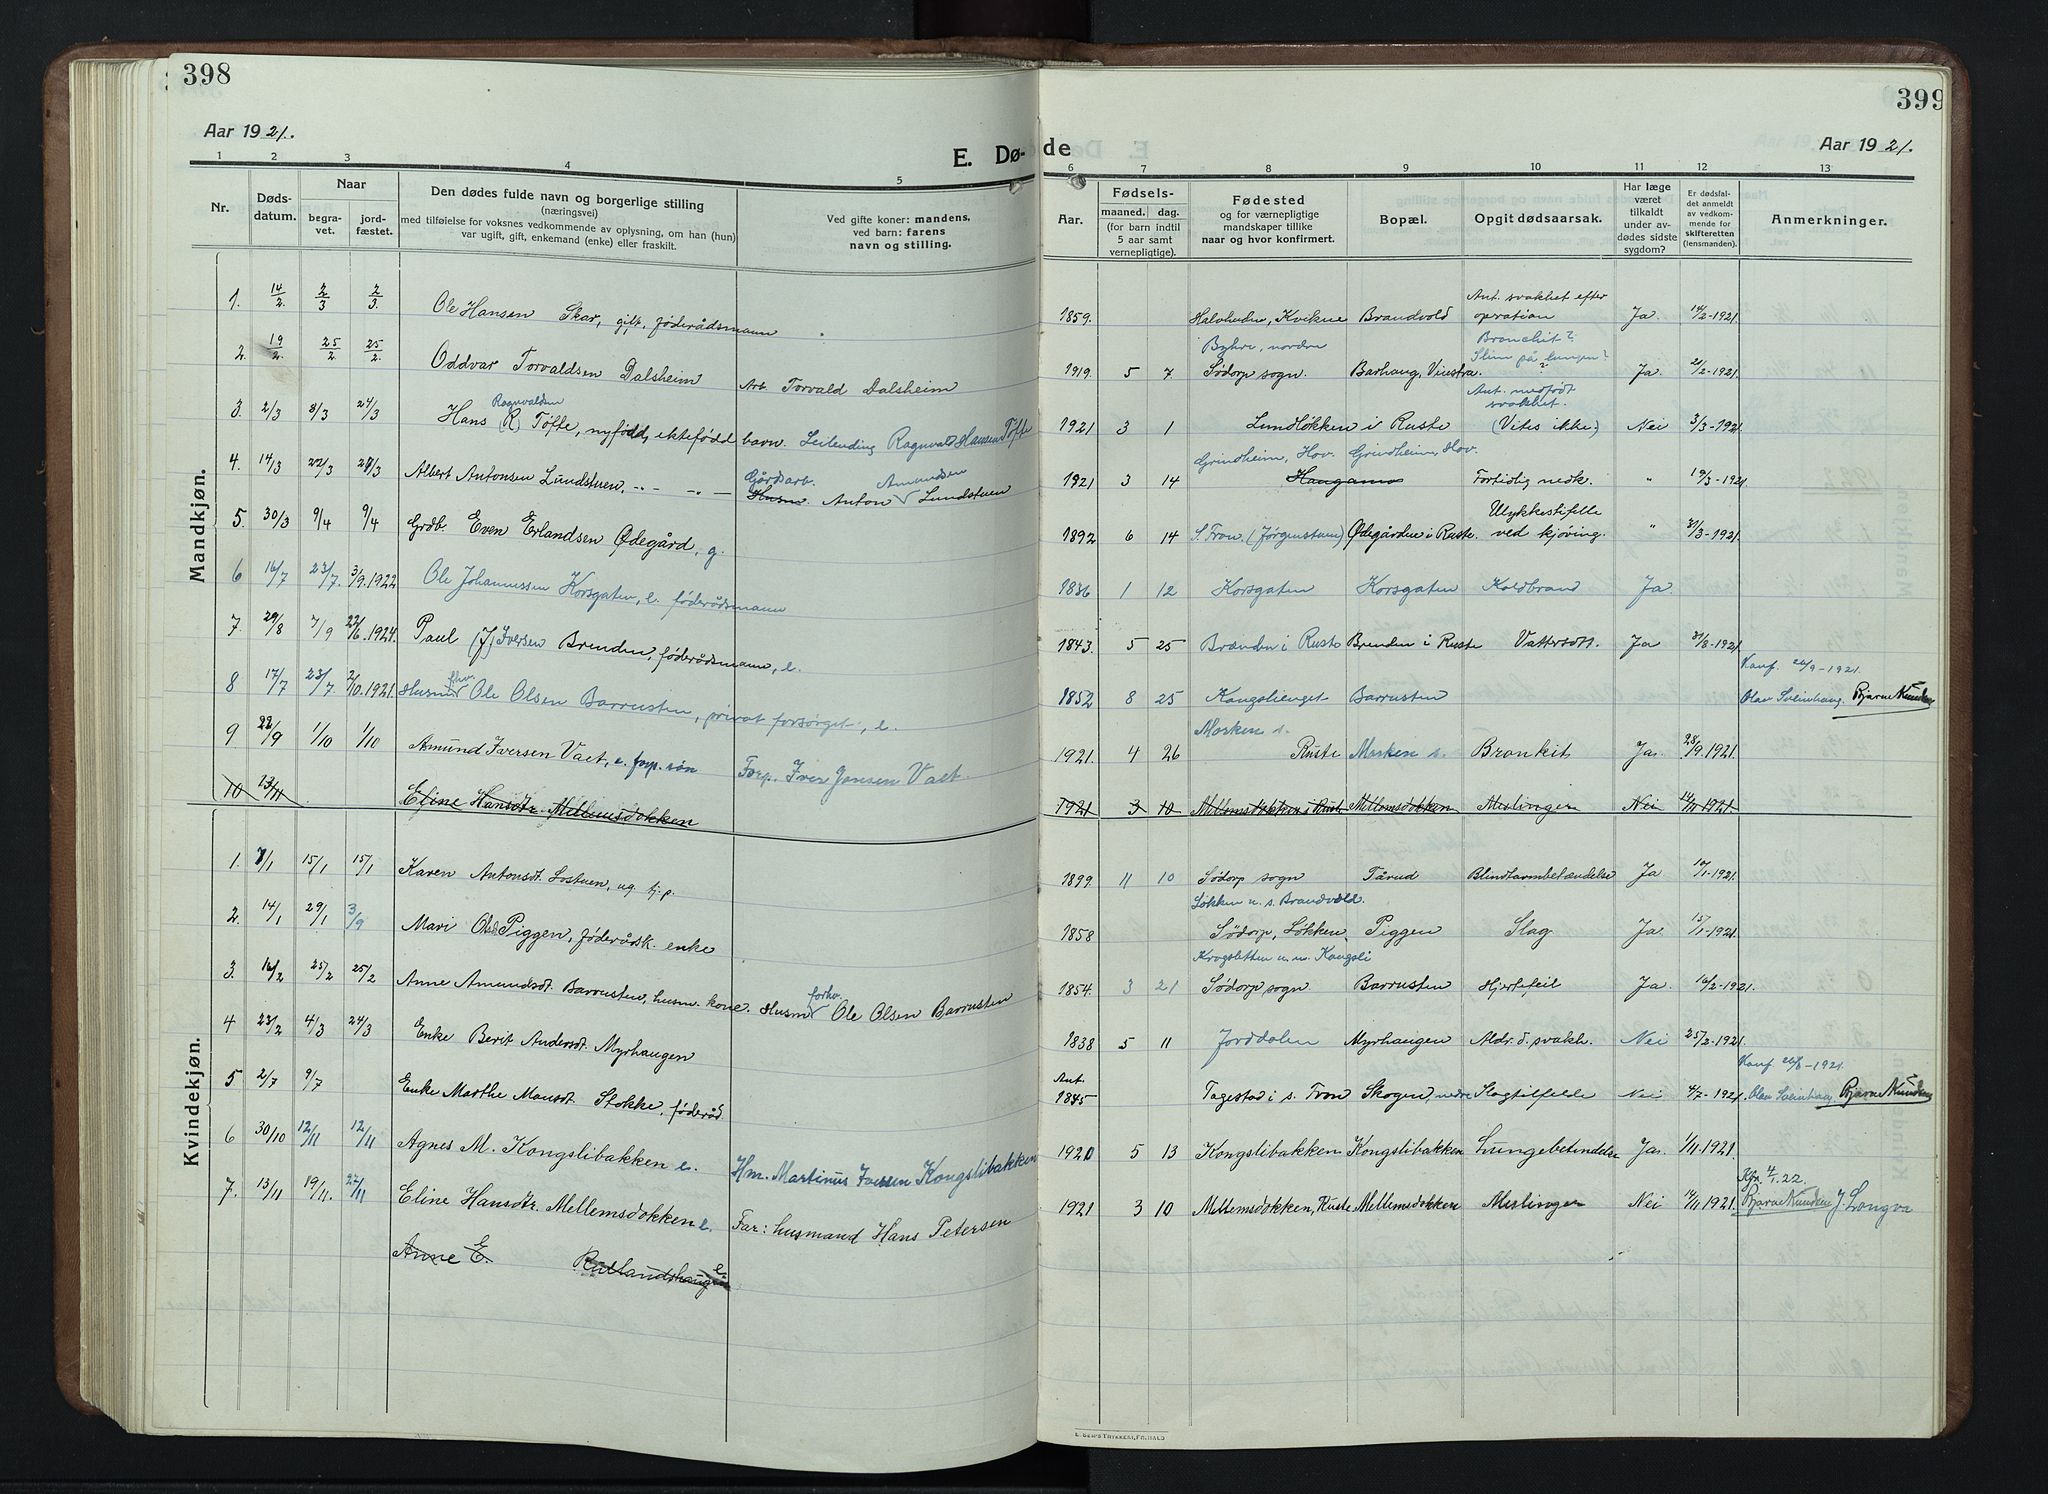 398
Aar 1921.
E. Dø-
1 2 3 4 5
Nr.
Døds-
datum.
Naar
begra-
vet.
jord-
fæstet.
Den dødes fulde navn og borgerlige stilling
(næringsvei)
med tilføielse for voksnes vedkommende av oplysning, om han (hun)
var ugift, gift, enkemand (enke) eller fraskilt.
Ved gifte koner: mandens,
ved barn: farens
navn og stilling.
Mandkjøn.
1. 14/2 2/3 2/3 Ole Hansen Skar, gift, føderådsmann
2. 19/2 25/2 25/2 Oddvar Torvaldsen Dalsheim Arb. Torvald Dalsheim
Ragnvaldsen
3. 2/3 8/3 24/3 Hans (R) Tøfte, nyfødd, ektefødd barn. Leilending Ragnvald Hansen Tøfte
Gårdsarb. Amundsen
4. 14/3 22/3 24/3 Albert Antonsen Lundstuen, -"- -"- Husm. Anton Lundstuen
5. 30/3 9/4 9/4 Grdb. Even Erlandsen Ødegård, g.
6 16/7 23/7. 3/9.1922 Ole Johannessen Korsgaten, e. føderådsmann
7. 29/8 7/9 22/6.1924. Paul (J) Iversen Brenden, føderådsmann, e.
fhv.
8 17/7 23/7 2/10.1921. Husm Ole Olsen Barrusten, privat forsørget, e.
9 22/9 1/10 1/10 Amund Iversen Vaet, e. forp. søn Forp. Iver Jansen Vaet.
10 13/11 Eline Hansdtr. Mellemsdokken
Kvindekjøn.
1. 7/1 15/1 15/1 Karen Antonsdt. Lostuen, ug. tj.p.
2. 14/1 29/1 3/9 Mari Olsd. Piggen, føderådsk. enke
forhv.
3. 16/2 25/2 25/2 Anne Amundsdt. Barrusten, husm. kone. Husm Ole Olsen Barrusten
4 23/2 4/3 24/3 Enke Berit Andersdt. Myrhaugen
5 2/7 9/7 Enke Marthe Mansdt. Stokke, føderåd
6 30/10 12/11 12/11 Agnes M. Kongslibakken e. Hm. Martinus Iversen Kongslibakken
7. 13/11 19/11. 27/11 Eline Hansdtr. Mellemsdokken e. Far: husmand Hans Petersen
Anne E. Rutlandshaugen e.
399
de
Aar 1921.
6 7 8 9 10 11 12 13
Aar.
Fødsels-
maaned. dag.
(for barn indtil
5 aar samt
vernepligtige).
Fødested
og for værnepligtige
mandskaper tillike
naar og hvor konfirmert.
Bopæl.
Opgit dødsaarsak.
Har læge
været
tilkaldt
under av-
dødes sidste
sygdom?
Er dødsfal-
det anmeldt
av vedkom-
mende for
skifteretten
(lensmanden).
Anmerkninger.
Ant. svakhet efter
1859. Kvikne Brandvold operation Ja. 14/2-1921
nordre Bronchit?
Slim på lungen?
1919. 5 7 Sødorp sogn. Barhaug, Vinstra. Ja 21/2-1921.
Ant. medfødt
svakhet.
1921 3 1 Lundløkken i Ruste (Vites ikke) Nei 3/3-1921
Grindheim, Hov. Grindheim, Hov.
1921 3 14 Haugamo Fortidlig nedk. " 19/3-1921
Ulykkestifelle
1892 6 14 S. Fron. (Jørgenstuen) Ødegården i Ruste. ved kjøring. " 31/3-1921.
1836 1 12 Korsgaten Korsgaten Koldbrand Ja
1843. 5 25 Brænden i Ruste Brenden i Ruste Vattersott. Ja 31/8-1921
Konf 26/9-1921.
1852 8 25 Kongslienget Barrusten Olav Sveinhaug. Bjarne Knudsen
Morken s.
1921. 4 26 Ruste Morken s. Bronkit Ja. 28/9.1921.
1921 3 10 Mellemsdokken i Ruste Mellemsdokken Meslinger Nei 14/11 1921.
1899 11 10 Sødorp sogn Tårud Blindtarmbetændelse Ja 10/1-1921.
Løkken u. s. Brandvold.
1858 Sødorp, Løkken Piggen Slag Ja 15/1-1921.
Krogslitten u. n. Kongsli
1854. 3 21 Sødorp sogn Barrusten Hjertefeil Ja. 16/2-1921.
1838 5 11 Jorddalen Myrhaugen Aldr.d. svakh. Nei 25/2-1921.
Konf 26/8-1921.
Ant.
1845 Tagestad i s. Fron Skogen, nedre Slagtilfelde Nei 4/7-1921. Olav Sveinhaug. Bjarne Knudsen
1920 5 13 Kongslibakken Kongslibakken Lungebetendelse Ja. 1/11 1921.
Kfr. 4/1.22.
1921 3 10 Mellemsdokken, Ruste Mellemsdokken Meslinger Nei 14/11 1921. Bjarne Knudsen J. Longva